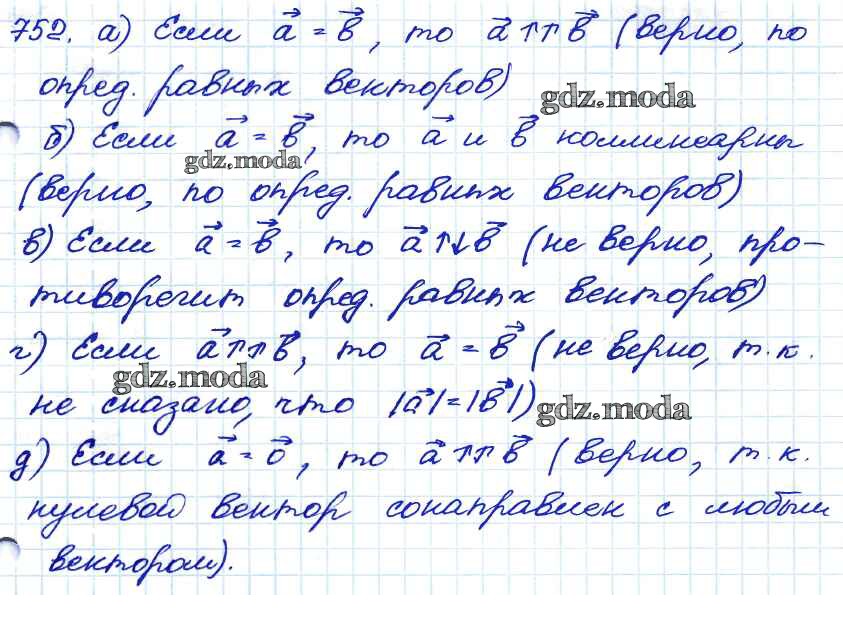 752. а) Если a⃗ = b⃗, то a⃗ ↑↑ b⃗ (верно, по
опред. равных векторов)
gdz.moda
б) Если a⃗ = b⃗, то a⃗ и b⃗ коллинеарны
gdz.moda
(верно, по опред. равных векторов)
в) Если a⃗ = b⃗, то a⃗ ↑↓ b⃗ (не верно, про-
тиворечит опред. равных векторов)
г) Если a⃗ ↑↑ b⃗, то a⃗ = b⃗ (не верно, т.к.
gdz.moda
не сказано, что |a⃗| = |b⃗|)
gdz.moda
д) Если a⃗ = o⃗, то a⃗ ↑↑ b⃗ (верно, т.к.
нулевой вектор сонаправлен с любым
вектором).